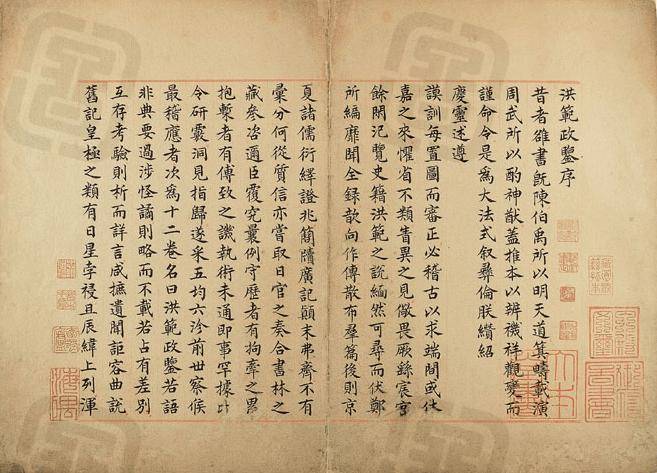 洪範政鑒序
昔者雒書旣陳伯禹所以明天道箕疇載演
周武所以酌神猷蓋推本以辨禨祥觀變而
謹命令是爲大法式叙彝倫朕纘紹
慶靈述遵
謨訓每置圖而審正必稽古以求端閒或休
嘉之來懼省不類眚異之見儆畏厥繇宸
餘閑汜覽史籍洪範之說緬然可尋而伏鄭
所編靡聞全録歆向作傳散布羣篇後則京
夏諸儒衍繹證兆簡牘廣記顛末弗齊不有
彙分何從質信亦嘗取日官之奏合書林之
藏參咨邇臣覆究曩例守歷者有拘牽之畏
抱槧者有傅致之譏執術未通即事罕據比
令研覈洞見指歸遂采五均六沴前世察候
最稽應者次爲十二卷名曰洪範政鑒若語
非典要過涉怪譎則略而不載若占有差别
互存考驗則析而詳言咸摭遺聞詎容曲說
舊記皇極之類有日星孛祲且辰緯上列渾